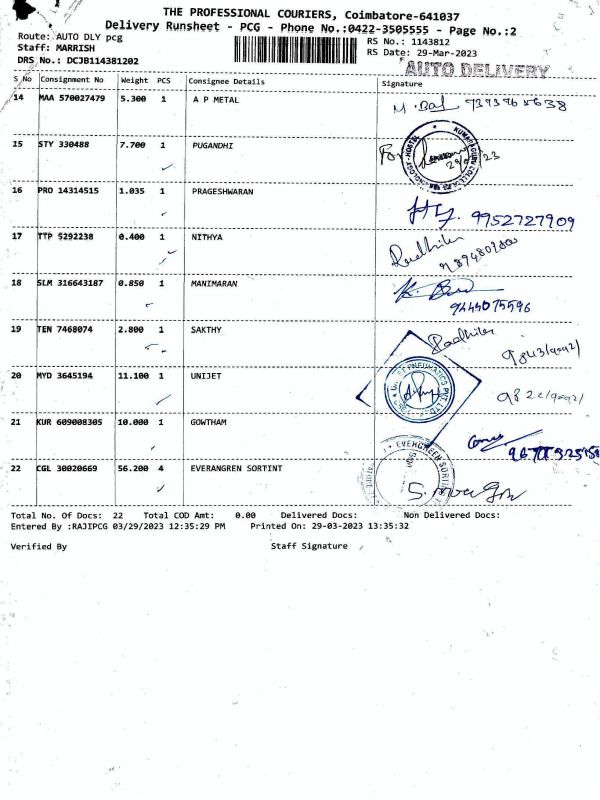 THE PROFESSIONAL COURIERS, Coimbatore-641037
Delivery Runsheet - PCG - Phone No.:0422-3505555 - Page No.:2
Route: AUTO DLY pcg
RS No.: 1143812
Staff: MARRISH
RS Date: 29-Mar-2023
DRS No.: DCJB114381202
AUTO DELIVERY
S No Consignment No Weight PCS Consignee Details Signature
14 MAA 570027479 5.300 1 A P METAL
15 STY 330488 7.700 1 PUGANDHI
16 PRO 14314515 1.035 1 PRAGESHWARAN 9952727909
17 TTP 5292238 0.400 1 NITHYA
18 SLM 316643187 0.850 1 MANIMARAN 9444075596
19 TEN 7468074 2.800 1 SAKTHY
20 MYD 3645194 11.100 1 UNIJET
21 KUR 609008305 10.000 1 GOWTHAM
22 CGL 30020669 56.200 4 EVERANGREN SORTINT
Total No. Of Docs: 22 Total COD Amt: 0.00 Delivered Docs: Non Delivered Docs:
Entered By :RAJIPCG 03/29/2023 12:35:29 PM Printed On: 29-03-2023 13:35:32
Verified By Staff Signature